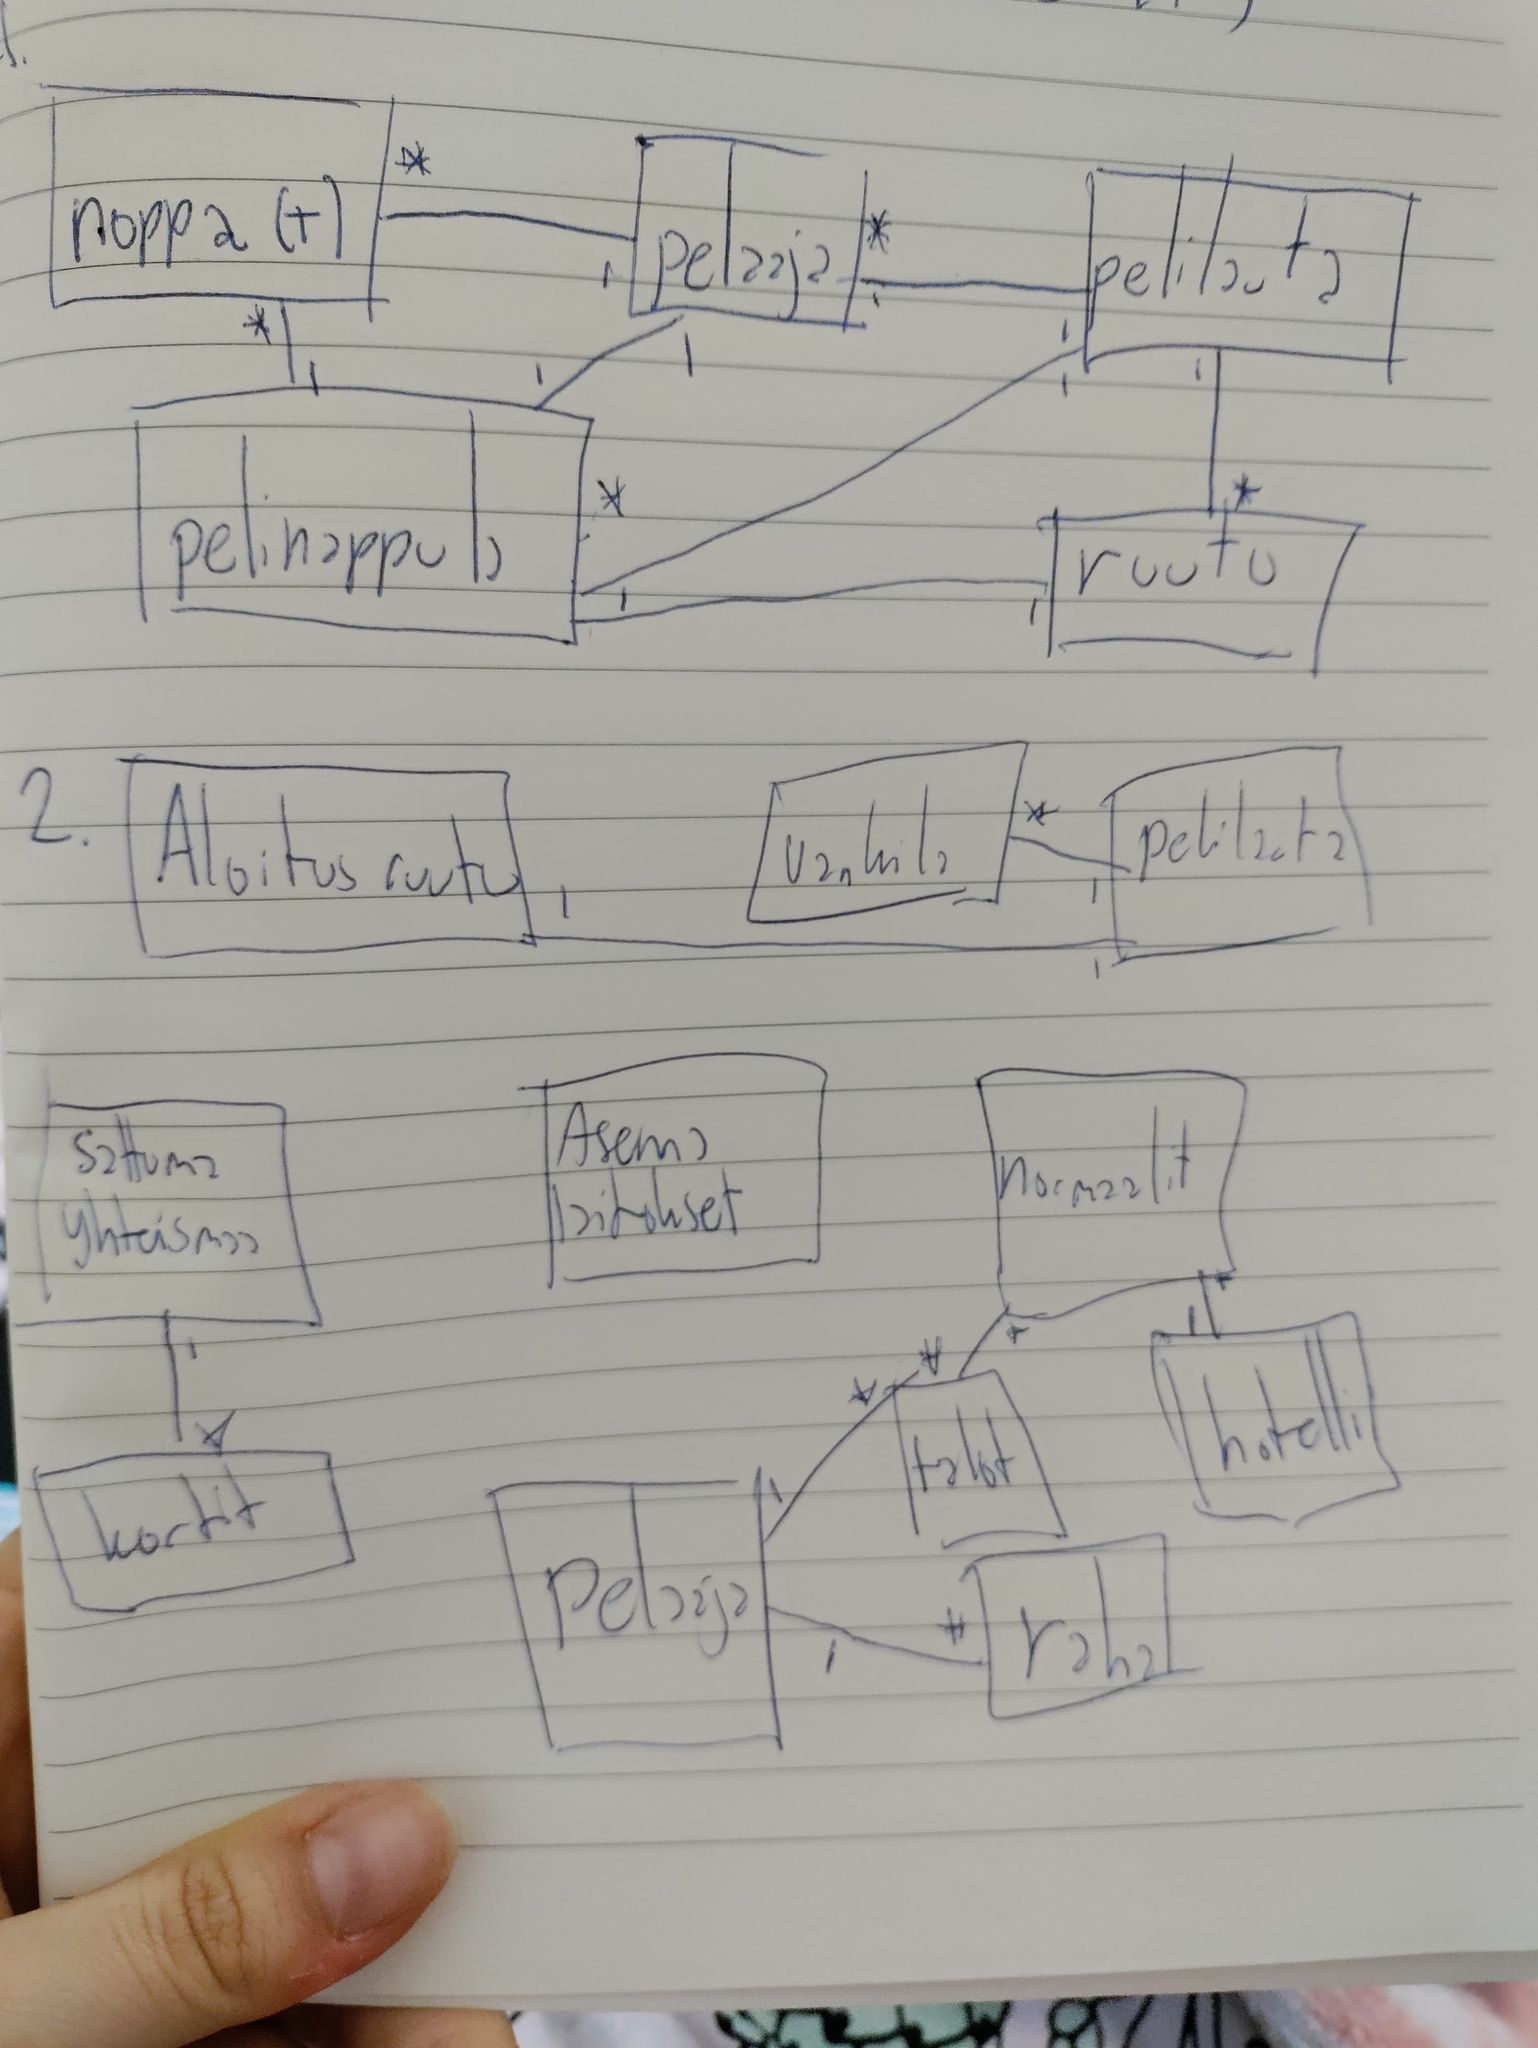 1.
noppa (t)
*
pelaaja
*
pelilauta
1
1
1
*
1
1
1
1
1
pelinappula
*
*
ruutu
1
1
2.
Aloitusruutu
1
vankila
*
pelilauta
1
1
Sattuma
yhteismaa
Asema
laitokset
normaalit
1
*
*
*
1
*
*
kortit
talot
hotelli
1
pelaaja
1
*
raha